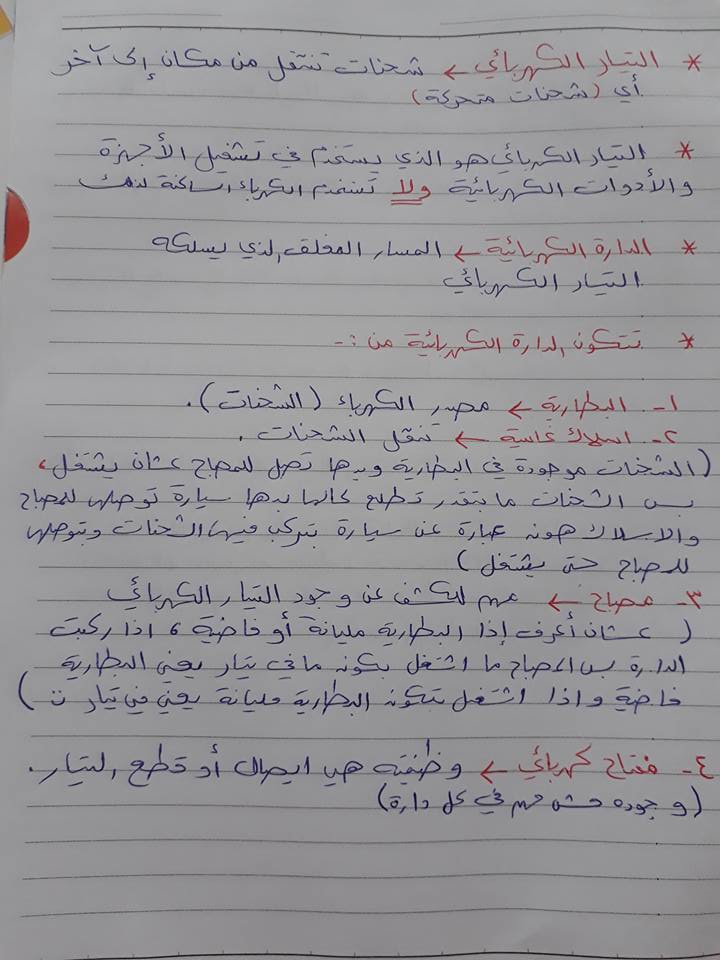 * التيار الكهربائي ← شحنات تنتقل من مكان إلى آخر
أي (شحنات متحركة)
* التيار الكهربائي هو الذي يستخدم في تشغيل الأجهزة
والأدوات الكهربائية ولا تستخدم الكهرباء الساكنة لذلك
* الدارة الكهربائية ← المسار المغلق الذي يسلكه
التيار الكهربائي
* تتكون الدارة الكهربائية من :-
١- البطارية ← مصدر الكهرباء (الشحنات).
٢- اسلاك نحاسية ← تنقل الشحنات.
(الشحنات موجودة في البطارية وبدها تصل للمصباح عشان يشتغل،
بس الشحنات ما بتقدر تطلع لحالها بدها سيارة توصلها للمصباح
والاسلاك هونه عبارة عن سيارة بتركب فيها الشحنات وبتوصلها
للمصباح حتى يشتغل)
٣- مصباح ← مهم للكشف عن وجود التيار الكهربائي
(عشان أعرف إذا البطارية مليانة أو فاضية، اذا ركبت
الدارة بس المصباح ما اشتغل بكونه ما في تيار يعني البطارية
فاضية واذا اشتغل بتكونه البطارية مليانة يعني في تيار)
٤- مفتاح كهربائي ← وظيفته هي ايصال أو قطع التيار.
(وجوده مش مهم في كل دارة)